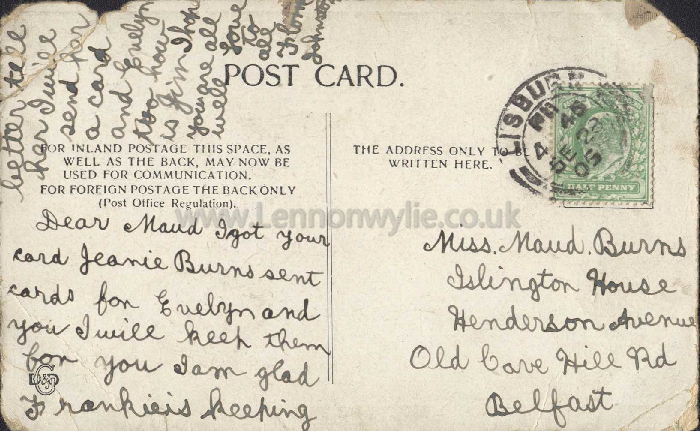 POST CARD.
FOR INLAND POSTAGE THIS SPACE, AS
WELL AS THE BACK, MAY NOW BE
USED FOR COMMUNICATION.
FOR FOREIGN POSTAGE THE BACK ONLY
(Post Office Regulation).
THE ADDRESS ONLY TO BE
WRITTEN HERE.
Dear Maud I got your
card Jeanie Burns sent
cards for Evelyn and
you I will keep them
for you I am glad
Frankie is keeping
better tell
her I will
send her
a card
and Evelyn
too how
is Jim I hop
you are all
well love
to
all
Johnson
Miss. Maud. Burns
Islington House
Henderson Avenue
Old Cave Hill Rd
Belfast
LISBURN
4 45
05
HALF PENNY
www.Lennonwylie.co.uk